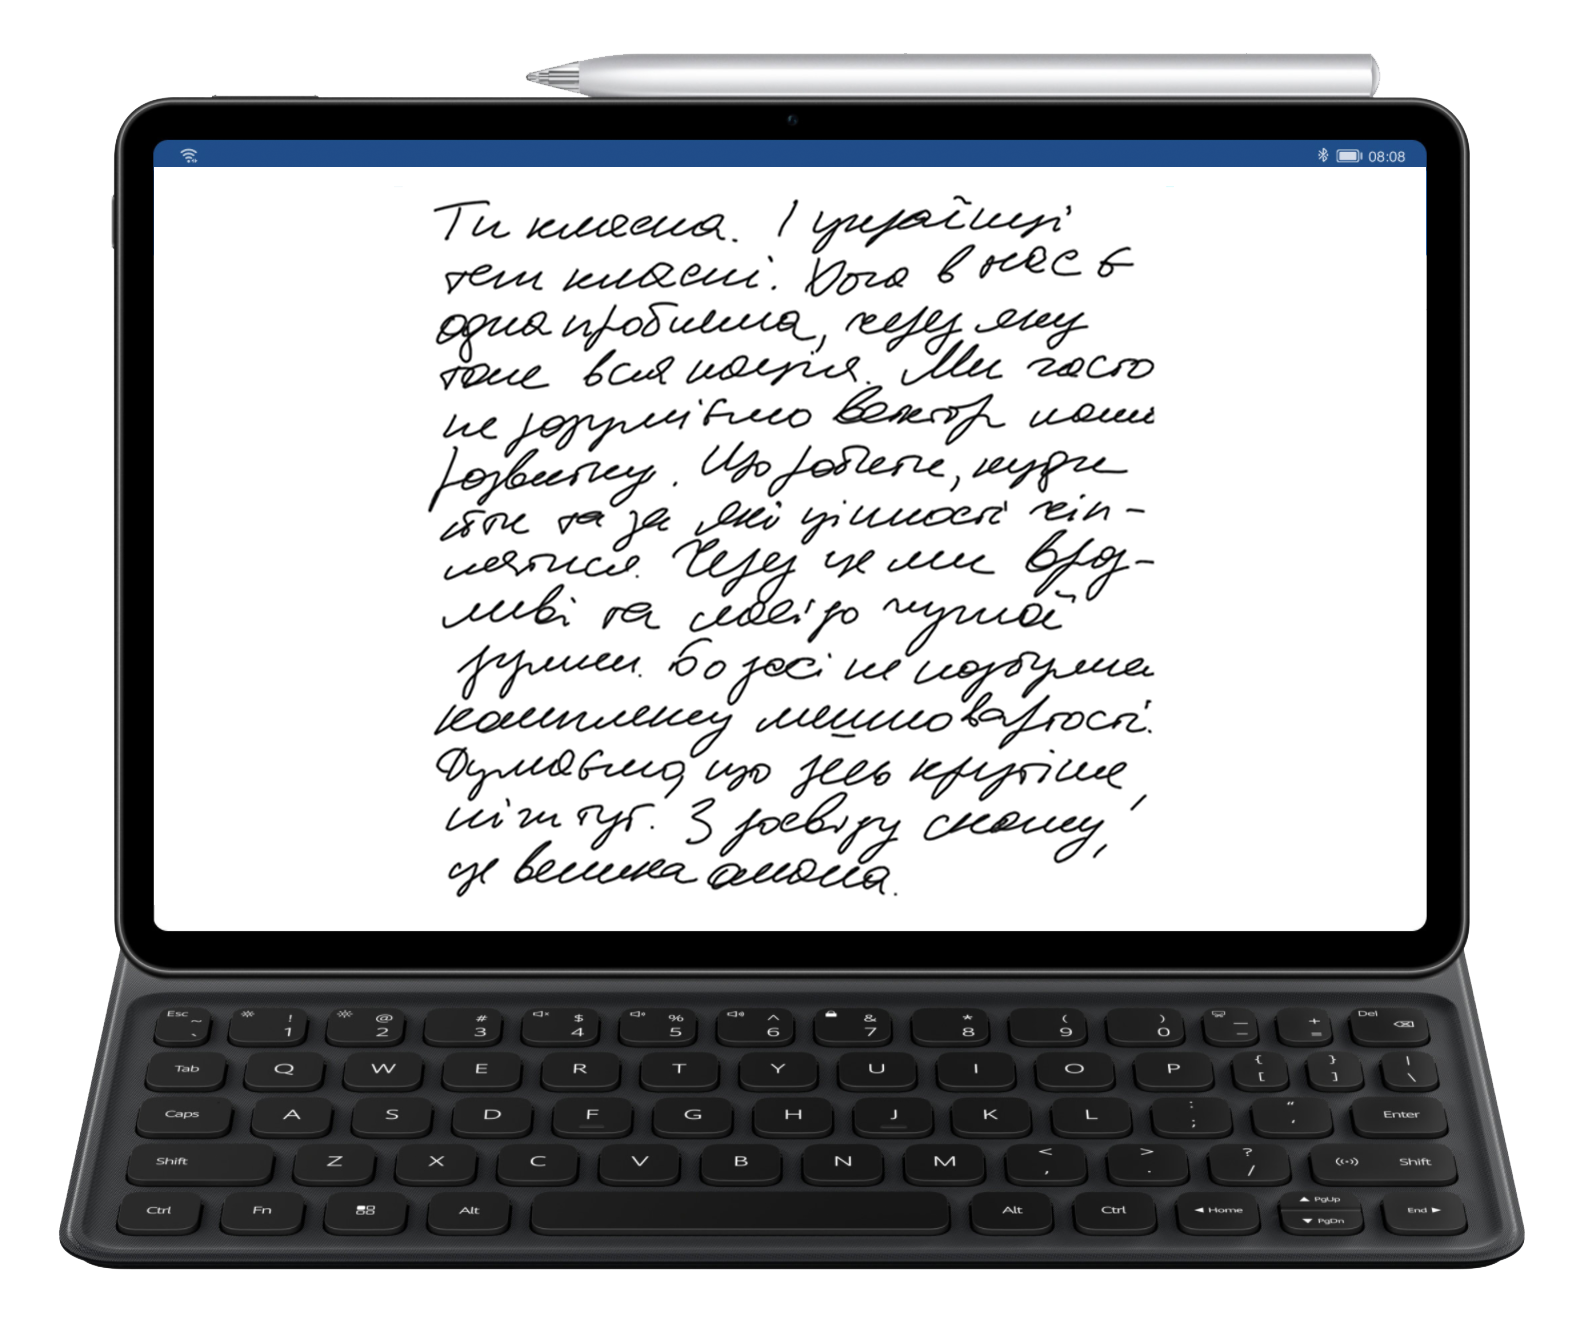 08:08
Ти класна. І українці
теж класні. Хоча в нас є
одна проблема, через яку
тоне вся нація. Ми часто
не розуміємо вектор
розвитку. Що робити, куди
йти та за які цінності чіп-
лятися. Через це ми враз-
ливі та ласі до чужої
думки. Бо досі не позбулися
комплексу меншовартості.
Думаємо, що десь крутіше,
ніж тут. З досвіду скажу,
це велика омана.
Esc ~ ` ! 1 @ 2 # 3 $ 4 % 5 ^ 6 & 7 * 8 ( 9 ) 0 — – + = Del
Tab Q W E R T Y U I O P { [ } ] | \
Caps A S D F G H J K L : ; “ ‘ Enter
Shift Z X C V B N M < , > . ? / Shift
Ctrl Fn Alt Alt Ctrl ◄ Home ▲ PgUp ▼ PgDn End ►